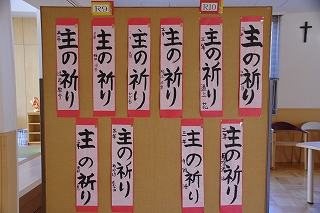 R9
R10
主の祈り
主の祈り
主の祈り
主の祈り
主の祈り
主の祈り
主の祈り
主の祈り
主の祈り
主の祈り